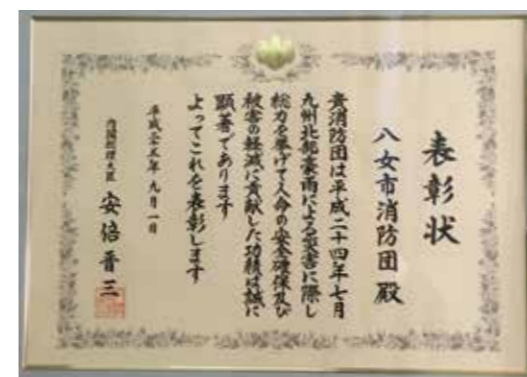 表彰状
八女市消防団 殿
貴消防団は平成二十四年七月
九州北部豪雨による災害に際し
総力を挙げて人命の安全確保及び
被害の軽減に貢献した功績は誠に
顕著であります
よってこれを表彰します
平成二十五年九月一日
内閣総理大臣 安倍晋三